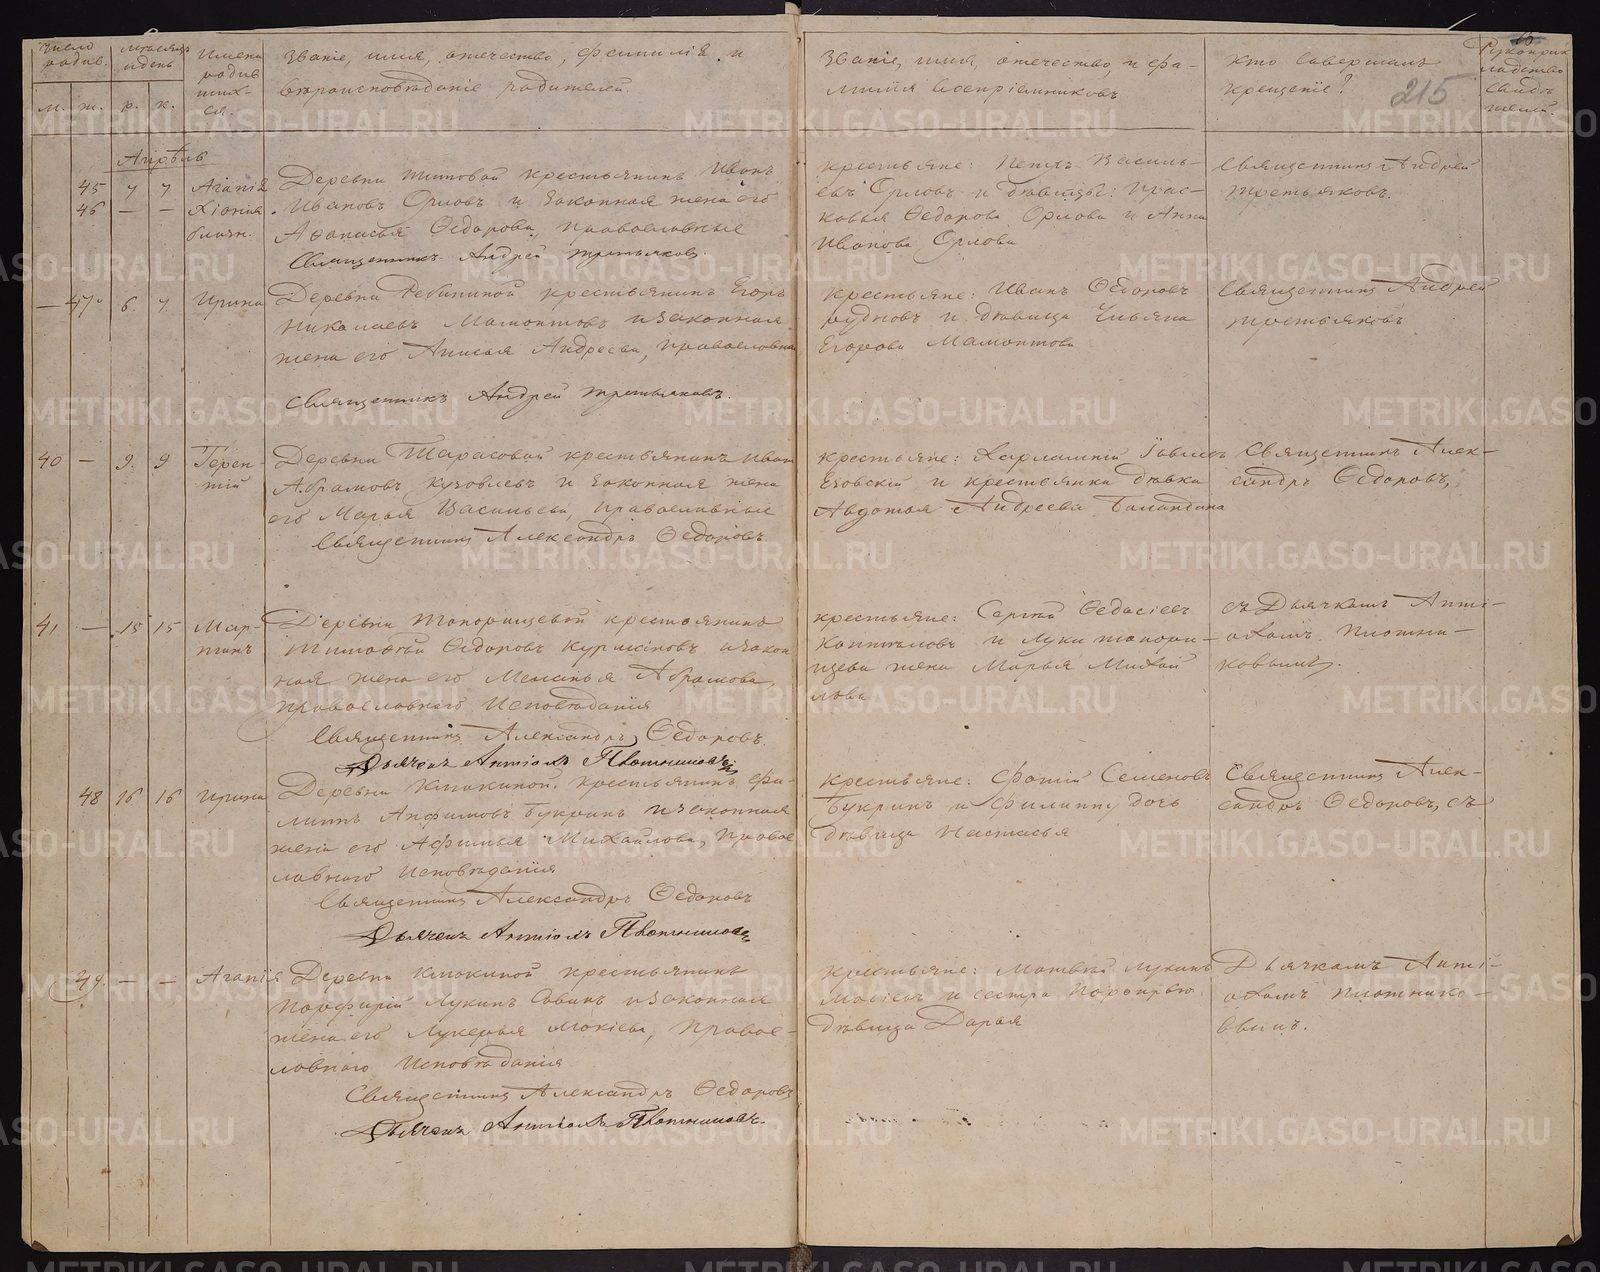 Число родив.
Месяцъ и день
Имена родившихся.
Званіе, имя, отечество, фамилія и
вѣроисповѣданіе родителей.
Званіе, имя, отечество, и фа-
милія воспріемниковъ
Кто совершалъ
крещеніе?
215
Рукоприкладство свидѣтелей.
м. ж. р. к.
Апрѣль
45 7 7 Агапія
46 — — Хіонія
близн.
Деревни Титовой крестьянинъ Иванъ
Ивановъ Орловъ и законная жена его
Афанасья Ѳедорова, православные
Священникъ Андрей Третьяковъ.
крестьяне: Петръ Василь-
евъ Орловъ и дѣвицы: Прас-
ковья Ѳедорова Орлова и Анна
Иванова Орлова
Священникъ Андрей
Третьяковъ.
47 6 7 Ирина
Деревни Ребининой крестьянинъ Егоръ
Николаевъ Мамонтовъ и законная
жена его Анисья Андреева, православны
Священникъ Андрей Третьяковъ.
крестьяне: Иванъ Ѳедоровъ
Рудновъ и дѣвица Ульяна
Егорова Мамонтова
Священникъ Андрей
Третьяковъ
40 — 9. 9 Терен-
тій
Деревни Тарасовой крестьянинъ Иванъ
Абрамовъ Кузовлевъ и законная жена
его Марья Васильева, православные
Священникъ Александръ Ѳедоровъ
крестьяне: Харлампій
и крестьянка дѣвка
Авдотья Андреева Баландина
Священникъ Алек-
сандръ Ѳедоровъ,
41 — 15 15 Мар-
тинъ
Деревни Топорищевой крестьянинъ
Тимоѳей Ѳедоровъ и закон
ная жена его Меланья Абрамова,
православнаго исповѣданія
Священникъ Александръ Ѳедоровъ.
Дьячекъ Антіохъ Плотниковъ
крестьяне: Сергей
и Луки Топори-
щева жена Марья Михай
лова
съ Дьячкомъ Анті-
охомъ Плотни-
ковымъ.
48 16 16 Ирина
Деревни Клюкиной, крестьянинъ Фи-
липпъ Анфимовъ Букринъ и законная
жена его Афимья Михайлова, правос
лавнаго исповѣданія
Священникъ Александръ Ѳедоровъ
Дьячекъ Антіохъ Плотниковъ
крестьяне: Фотій Семеновъ
Букринъ и Филиппу дочь
дѣвица Настасья
Священникъ Алек-
сандръ Ѳедоровъ, съ
49. — — Агапія
Деревни Клюкиной крестьянинъ
Порфирій Лукинъ Савинъ и законная
жена его Лукерья Мокіева, правос-
лавнаго исповѣданія
Священникъ Александръ Ѳедоровъ
Дьячекъ Антіохъ Плотниковъ.
крестьяне: Матвей Лукинъ
и сестра Порфирью
дѣвица Дарья
Дьячкомъ Анті-
охомъ Плотнико-
вымъ.
METRIKI.GASO-URAL.RU